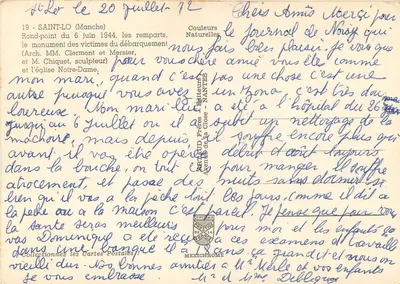 St Lo le 20 juillet 72
19 - SAINT-LO (Manche)
Rond-point du 6 juin 1944, les remparts,
le monument des victimes du débarquement
(Arch. MM. Clermont et Mersier,
et M. Chiquet, sculpteur)
et l'Eglise Notre-Dame.
Couleurs
Naturelles
Chers Amis Merçi pour
le journal de
nous fais bien plaisir. Je vois que
pour vous chère amie vous êtes comme
mon mari, quand c'est pas une chose c'est une
autre puisque vous avez un Zona, c'est très dou
loureuse. Mon mari lui a été a l'hôpital du 26
jusqu'au 6 juillet ou il a subit un nettoyage de la
machoire, mais depuis il souffre encore plus qu'
avant il vas être opéré début d'août toujours
dans la bouche, on voit pour manger, il souffre
atrocement et passe des nuits sans dormir
bien qu'il vas a la pêche tout les jours, comme il dit a
la pêche ou a la maison c'est pareil. Je pense que pour vous
la santé sera meilleurs pour moi et les enfants ça
vas Dominique a été reçu a ces examens et travaille
dans une banque il a 20 ans ça grandit et nous on
vieilli dur. Nos bonnes amitiés a Mr Merle et vos enfants
Je vous embrasse. Mr et Mme
Collectionnez les Cartes Postales